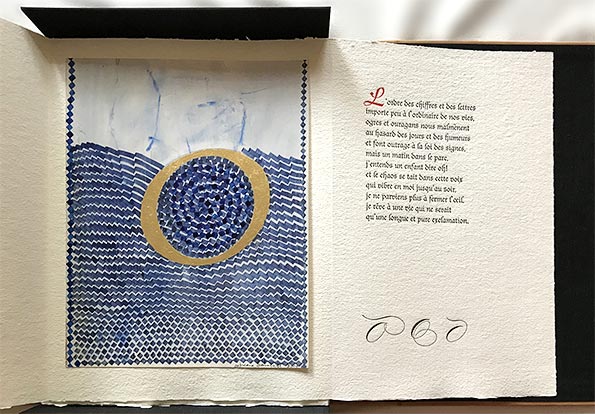 L'ordre des chiffres et des lettres
importe peu à l'ordinaire de nos vies,
ogres et ouragans nous malmènent
au hasard des jours et des humeurs
et font outrage à la loi des signes,
mais un matin dans le parc,
j'entends un enfant dire oh!
et le chaos se tait dans cette voix
qui vibre en moi jusqu'au soir,
je ne parviens plus à fermer l'œil,
je rêve à une vie qui ne serait
qu'une longue et pure exclamation.